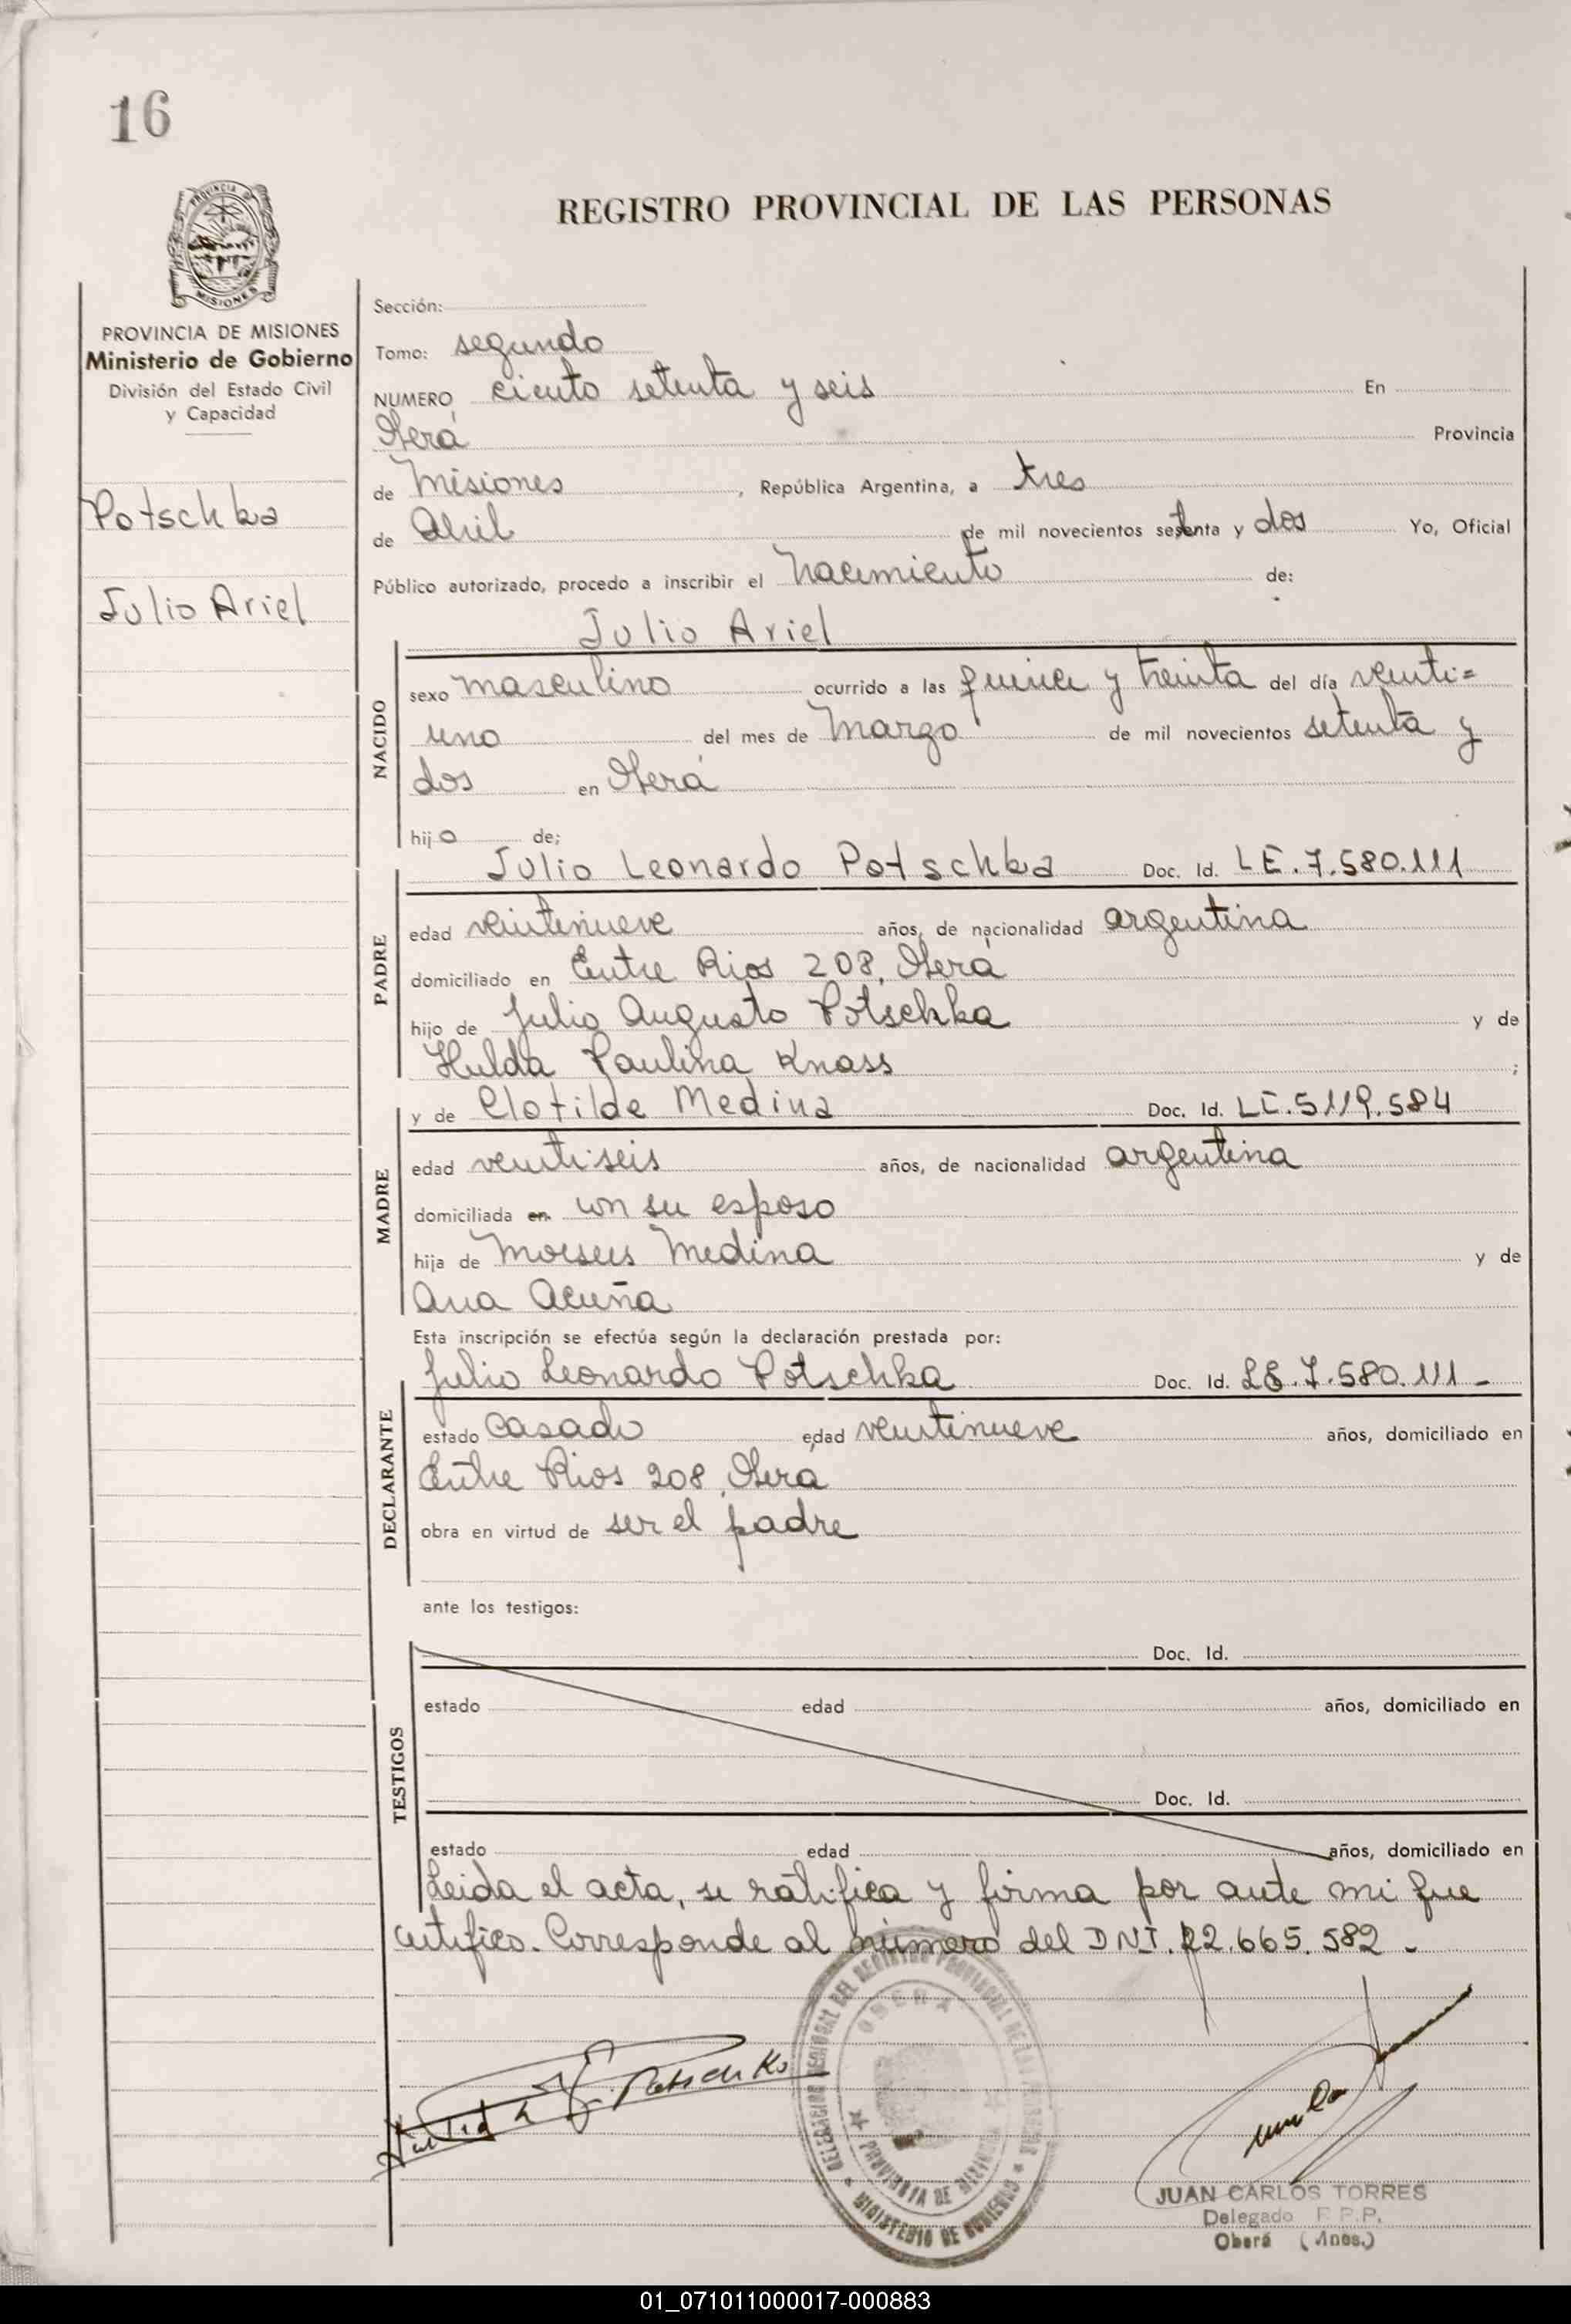 16
REGISTRO PROVINCIAL DE LAS PERSONAS
PROVINCIA DE MISIONES
PROVINCIA DE MISIONES
Ministerio de Gobierno
División del Estado Civil
y Capacidad
Potschka
Julio Ariel
Sección:
Tomo: segundo
NUMERO ciento setenta y seis En
Oberá Provincia
de Misiones, República Argentina, a tres
de Abril de mil novecientos setenta y dos Yo, Oficial
Público autorizado, procedo a inscribir el nacimiento de:
Julio Ariel
NACIDO
sexo masculino ocurrido a las quince y treinta del día veinti=
uno del mes de Marzo de mil novecientos setenta y
dos en Oberá
hijo de;
Julio Leonardo Potschka Doc. Id. LE.7.580.111
PADRE
edad veintinueve años, de nacionalidad argentina
domiciliado en Entre Rios 208, Oberá
hijo de Julio Augusto Potschka y de
Hulda Paulina Knass ;
y de Clotilde Medina Doc. Id. LC.5119.584
MADRE
edad veintiseis años, de nacionalidad argentina
domiciliada en con su esposo
hija de Moises Medina y de
Ana Acuña
Esta inscripción se efectúa según la declaración prestada por:
Julio Leonardo Potschka Doc. Id. LE.7.580.111-
DECLARANTE
estado casado edad veintinueve años, domiciliado en
Entre Rios 208, Obera
obra en virtud de ser el padre
ante los testigos:
Doc. Id.
TESTIGOS
estado edad años, domiciliado en
Doc. Id.
estado edad años, domiciliado en
Leida el acta, se ratifica y firma por ante mi que
certifico. Corresponde al número del DNI. 22.665.582-
DELEGACION REGIONAL DEL REGISTRO PROVINCIAL DE LAS PERSONAS
OBERA
PROVINCIA DE MISIONES
MINISTERIO DE GOBIERNO
JUAN CARLOS TORRES
Delegado R.P.P.
Oberá (Mnes.)
01_071011000017-000883